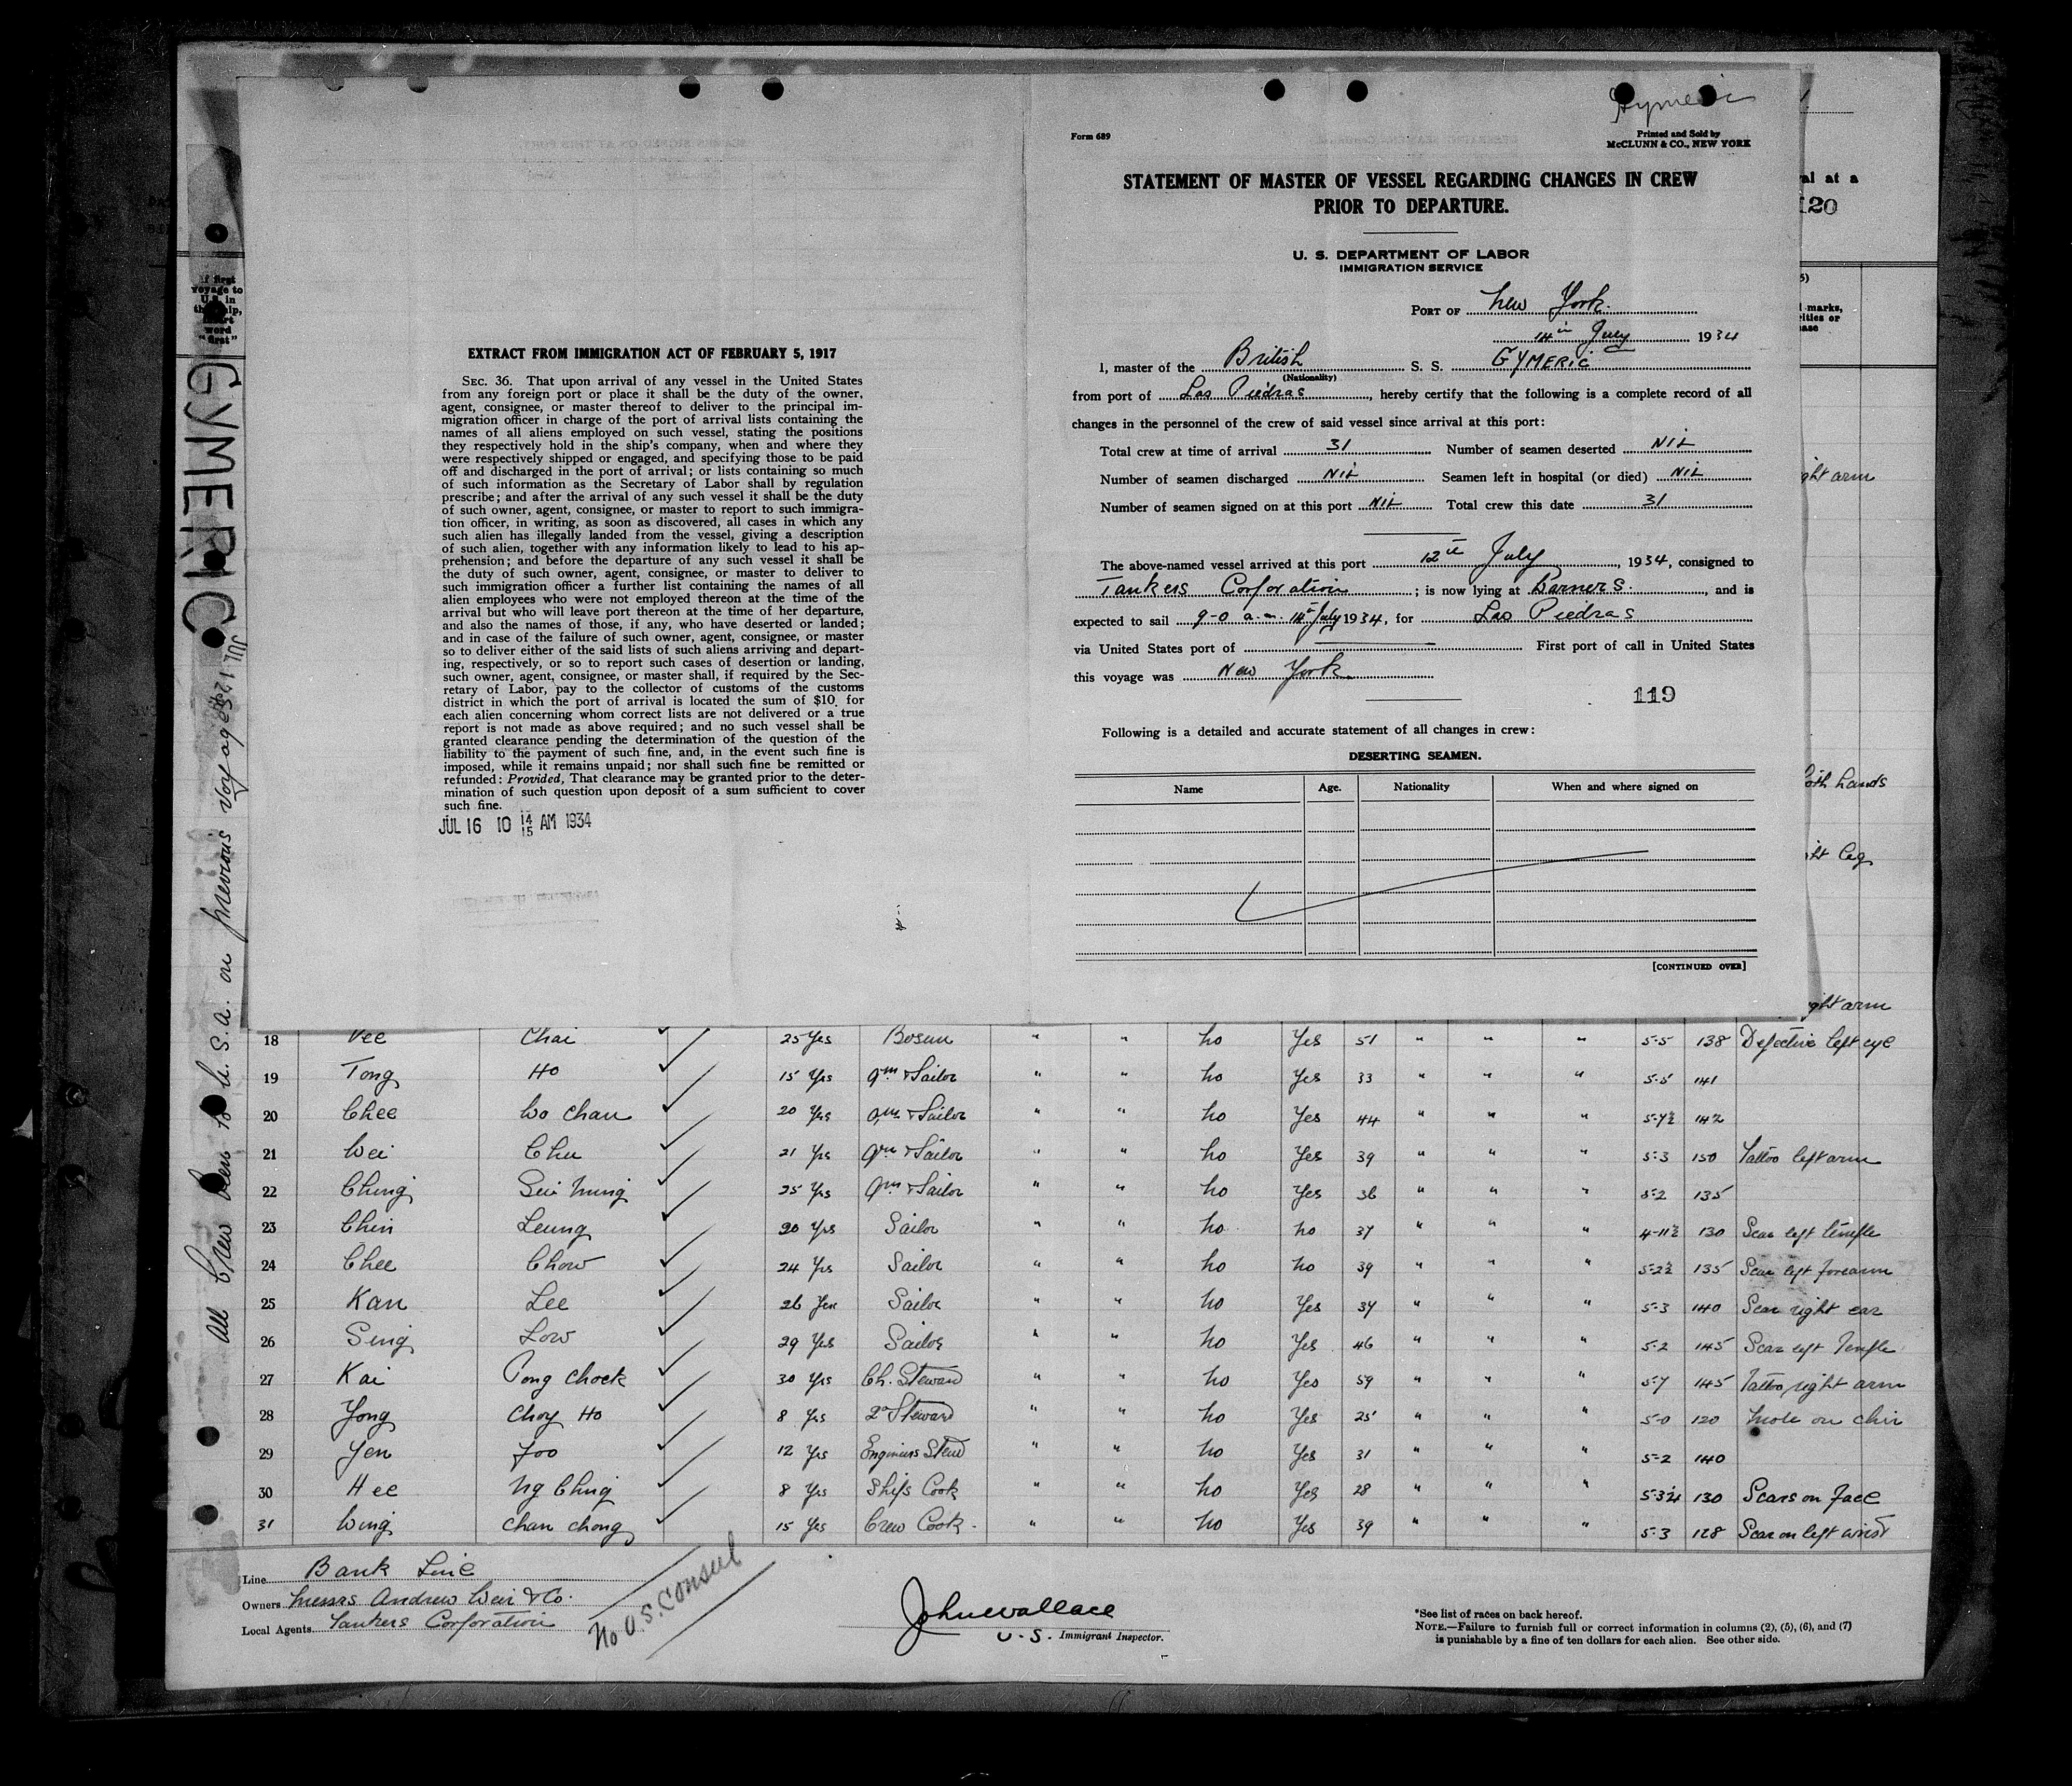 Gymeric
Form 689
Printed and Sold by
McCLUNN & CO., NEW YORK
STATEMENT OF MASTER OF VESSEL REGARDING CHANGES IN CREW
PRIOR TO DEPARTURE.
U. S. DEPARTMENT OF LABOR
IMMIGRATION SERVICE
PORT OF New York.
14th July 1934
I, master of the British S. S. GYMERIC
(Nationality)
from port of Las Piedras, hereby certify that the following is a complete record of all
changes in the personnel of the crew of said vessel since arrival at this port:
Total crew at time of arrival 31 Number of seamen deserted NIL
Number of seamen discharged NIL Seamen left in hospital (or died) NIL
Number of seamen signed on at this port NIL Total crew this date 31
The above-named vessel arrived at this port 12th July, 1934, consigned to
Tankers Corporation; is now lying at Barners., and is
expected to sail 9-0 a.m. 14th July 1934, for Las Piedras
via United States port of First port of call in United States
this voyage was New York
119
Following is a detailed and accurate statement of all changes in crew:
DESERTING SEAMEN.
Name Age. Nationality When and where signed on
[CONTINUED OVER]
EXTRACT FROM IMMIGRATION ACT OF FEBRUARY 5, 1917
SEC. 36. That upon arrival of any vessel in the United States
from any foreign port or place it shall be the duty of the owner,
agent, consignee, or master thereof to deliver to the principal im-
migration officer in charge of the port of arrival lists containing the
names of all aliens employed on such vessel, stating the positions
they respectively hold in the ship's company, when and where they
were respectively shipped or engaged, and specifying those to be paid
off and discharged in the port of arrival; or lists containing so much
of such information as the Secretary of Labor shall by regulation
prescribe; and after the arrival of any such vessel it shall be the duty
of such owner, agent, consignee, or master to report to such immigra-
tion officer, in writing, as soon as discovered, all cases in which any
such alien has illegally landed from the vessel, giving a description
of such alien, together with any information likely to lead to his ap-
prehension; and before the departure of any such vessel it shall be
the duty of such owner, agent, consignee, or master to deliver to
such immigration officer a further list containing the names of all
alien employees who were not employed thereon at the time of the
arrival but who will leave port thereon at the time of her departure,
and also the names of those, if any, who have deserted or landed;
and in case of the failure of such owner, agent, consignee, or master
so to deliver either of the said lists of such aliens arriving and depart-
ing, respectively, or so to report such cases of desertion or landing,
such owner, agent, consignee, or master shall, if required by the Sec-
retary of Labor, pay to the collector of customs of the customs
district in which the port of arrival is located the sum of $10 for
each alien concerning whom correct lists are not delivered or a true
report is not made as above required; and no such vessel shall be
granted clearance pending the determination of the question of the
liability to the payment of such fine, and, in the event such fine is
imposed, while it remains unpaid; nor shall such fine be remitted or
refunded: Provided, That clearance may be granted prior to the deter-
mination of such question upon deposit of a sum sufficient to cover
such fine.
JUL 16 10 14 15 AM 1934
If first
voyage to
U.S. in
this ship,
insert
word
"first"
GYMERIC
JUL 12
All Crew been to U.S.A. on previous voyages
al at a
120
marks,
ght arm
oth hands
ht leg
ght arm
18 Vee Chai 25 Yrs Bosun " " no Yes 51 " " " 5-5 138 Defective left eye
19 Tong Ho 15 Yrs Qm & Sailor " " no Yes 33 " " " 5-5 141
20 Chee Wo Chan 20 Yrs Qm & Sailor " " no Yes 44 " " " 5-7½ 142
21 Wei Chu 21 Yrs Qm & Sailor " " no Yes 39 " " " 5-3 150 Tattoo left arm
22 Ching Sui Hung 25 Yrs Qm & Sailor " " no Yes 36 " " " 5-2 135
23 Chin Leung 20 Yrs Sailor " " no no 37 " " " 4-11½ 130 Scar left temple
24 Chee Chow 24 Yrs Sailor " " no no 39 " " " 5-2½ 135 Scar left forearm
25 Kan Lee 26 Yrs Sailor " " no Yes 37 " " " 5-3 140 Scar right ear
26 Sing Low 29 Yrs Sailor " " no Yes 46 " " " 5-2 145 Scar left Temple
27 Kai Pong Chock 30 Yrs Ch. Steward " " no Yes 59 " " " 5-7 145 Tattoo right arm
28 Yong Choy Ho 8 Yrs 2d Steward " " no Yes 25 " " " 5-0 120 Mole on chin
29 Yen Foo 12 Yrs Engineers Stew " " no Yes 31 " " " 5-2 140
30 Hee Ng Ching 8 Yrs Ships Cook " " no Yes 28 " " " 5-3¼ 130 Scars on face
31 Wing Chan Chong 15 Yrs Crew Cook " " no Yes 39 " " " 5-3 128 Scar on left wrist
Line Bank Line
Owners Messrs Andrew Weir & Co.
Local Agents Tankers Corporation
No U.S. Consul
John Wallace
U.S. Immigrant Inspector.
*See list of races on back hereof.
NOTE.—Failure to furnish full or correct information in columns (2), (5), (6), and (7)
is punishable by a fine of ten dollars for each alien. See other side.